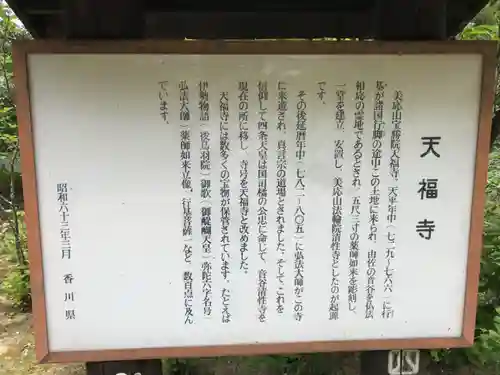 天福寺
美応山宝勝院天福寺、天平年中（七二九～七六六）に行
基が諸国行脚の途中この土地に来られ、由佐の音谷を仏法
相応の霊地であるとされ、五尺三寸の薬師如来を彫刻し、
一堂を建立、安置し、美応山法輪院清性寺としたのが起源
です。
その後延暦年中（七八二～八〇五）に弘法大師がこの寺
に来遊され、真言宗の道場とされました。そして、これを
信仰して四条天皇は国司橘の公忠に命じて、音谷清性寺を
現在の所に移し、寺号を天福寺と改めました。
天福寺には数多くの宝物が保管されています。たとえば
伊勢物語（後鳥羽院）御歌（御醍醐天皇）弥陀六字名号（
弘法大師（薬師如来立像、行基菩薩）など、数百点に及ん
でいます。
昭和六十三年三月　香川県